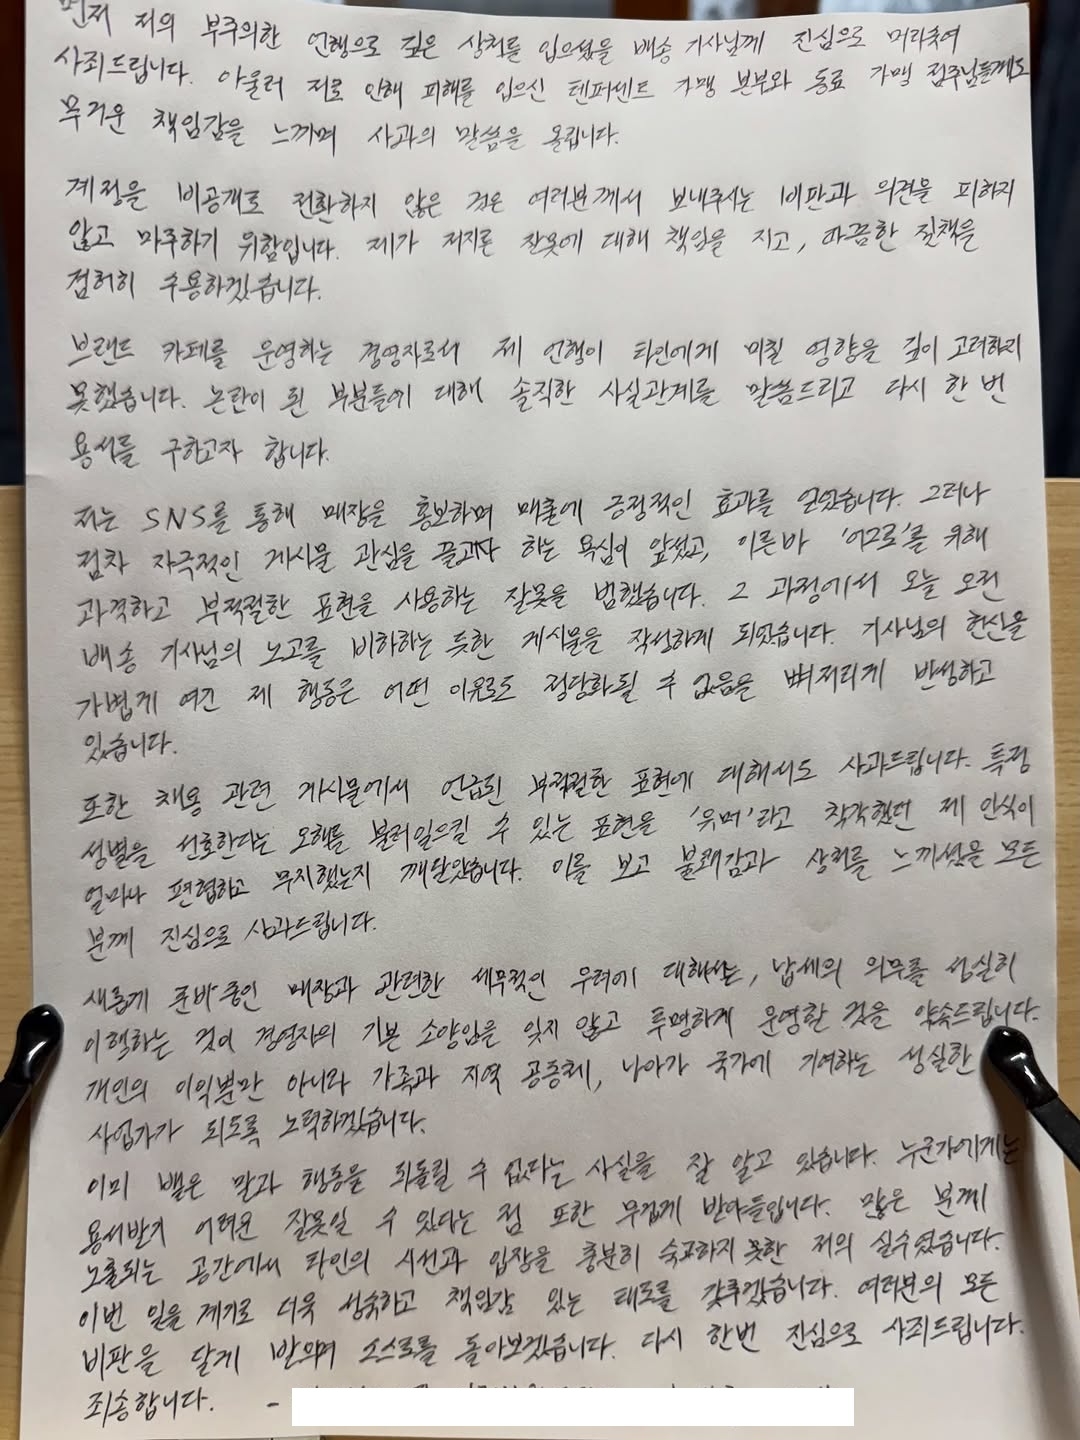 먼저 저의 부주의한 언행으로 깊은 상처를 입으셨을 배송 기사님께 진심으로 머리숙여
사죄드립니다. 아울러 저로 인해 피해를 입으신 텐퍼센트 가맹 본부와 동료 가맹 점주님들께도
무거운 책임감을 느끼며 사과의 말씀을 올립니다.
계정을 비공개로 전환하지 않은 것은 여러분께서 보내주시는 비판과 의견을 피하지
않고 마주하기 위함입니다. 제가 저지른 잘못에 대해 책임을 지고, 따끔한 질책을
겸허히 수용하겠습니다.
브랜드 카페를 운영하는 경영자로서 제 언행이 타인에게 미칠 영향을 깊이 고려하지
못했습니다. 논란이 된 부분들에 대해 솔직한 사실관계를 말씀드리고 다시 한 번
용서를 구하고자 합니다.
저는 SNS를 통해 매장을 홍보하며 매출에 긍정적인 효과를 얻었습니다. 그러나
점차 자극적인 게시물 관심을 끌고자 하는 욕심이 앞섰고, 이른바 '어그로'를 위해
과격하고 부적절한 표현을 사용하는 잘못을 범했습니다. 그 과정에서 오늘 오전
배송 기사님의 노고를 비하하는 듯한 게시물을 작성하게 되었습니다. 기사님의 헌신을
가볍게 여긴 제 행동은 어떤 이유로도 정당화될 수 없음을 뼈저리게 반성하고
있습니다.
또한 채용 관련 게시물에서 언급된 부적절한 표현에 대해서도 사과드립니다. 특정
성별을 선호한다는 오해를 불러일으킬 수 있는 표현을 '유머'라고 착각했던 제 인식이
얼마나 편협하고 무지했는지 깨달았습니다. 이를 보고 불쾌감과 상처를 느끼셨을 모든
분께 진심으로 사과드립니다.
새롭게 준비 중인 매장과 관련한 세무적인 우려에 대해서는, 납세의 의무를 성실히
이행하는 것이 경영자의 기본 소양임을 잊지 않고 투명하게 운영할 것을 약속드립니다.
개인의 이익뿐만 아니라 가족과 지역 공동체, 나아가 국가에 기여하는 성실한
사업가가 되도록 노력하겠습니다.
이미 뱉은 말과 행동을 되돌릴 수 없다는 사실을 잘 알고 있습니다. 누군가에게는
용서받기 어려운 잘못일 수 있다는 점 또한 무겁게 받아들입니다. 많은 분께
노출되는 공간에서 타인의 시선과 입장을 충분히 숙고하지 못한 저의 실수였습니다.
이번 일을 계기로 더욱 성숙하고 책임감 있는 태도를 갖추겠습니다. 여러분의 모든
비판을 달게 받으며 스스로를 돌아보겠습니다. 다시 한번 진심으로 사죄드립니다.
죄송합니다. -